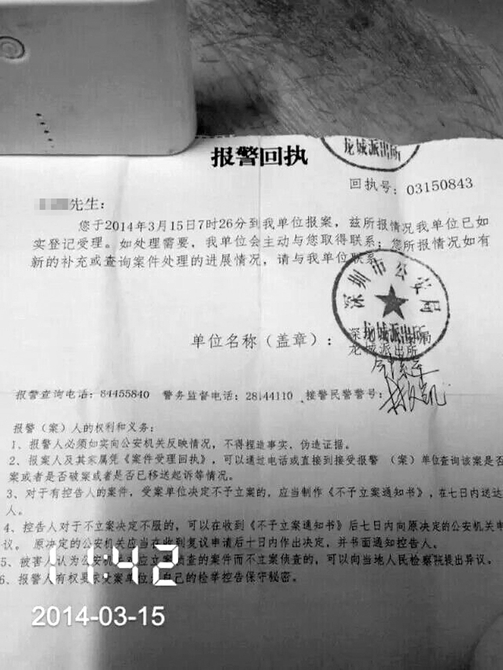 龙城派出所
报警回执
回执号：03150843
先生：
您于2014年3月15日7时26分到我单位报案，兹所报情况我单位已如
实登记受理。如处理需要，我单位会主动与您取得联系；您所报情况如有
新的补充或查询案件处理的进展情况，请与我单位联系。
深圳市公安局
龙城派出所
单位名称（盖章）：
龙城派出所
报警查询电话：84455840 警务监督电话：28144110 接警民警警号：
报警（案）人的权利和义务：
1、报警人必须如实向公安机关反映情况，不得捏造事实、伪造证据。
2、报案人及其家属凭《案件受理回执》，可以通过电话或直接到接受报警（案）单位查询该案是否
案或者是否破案或者是否已移送起诉等情况。
3、对于有控告人的案件，受案单位决定不予立案的，应当制作《不予立案通知书》，在七日内送达
人。
4、控告人对于不立案决定不服的，可以在收到《不予立案通知书》后七日内向原决定的公安机关申
议。原决定的公安机关应当在收到复议申请后七日内作出决定，并书面通知控告人。
5、被害人认为公安机关应立案侦查的案件而不立案侦查的，可以向当地人民检察院提出异议。
6、报警人有权要求受案单位为自己的检举控告保守秘密。
11:42
2014-03-15